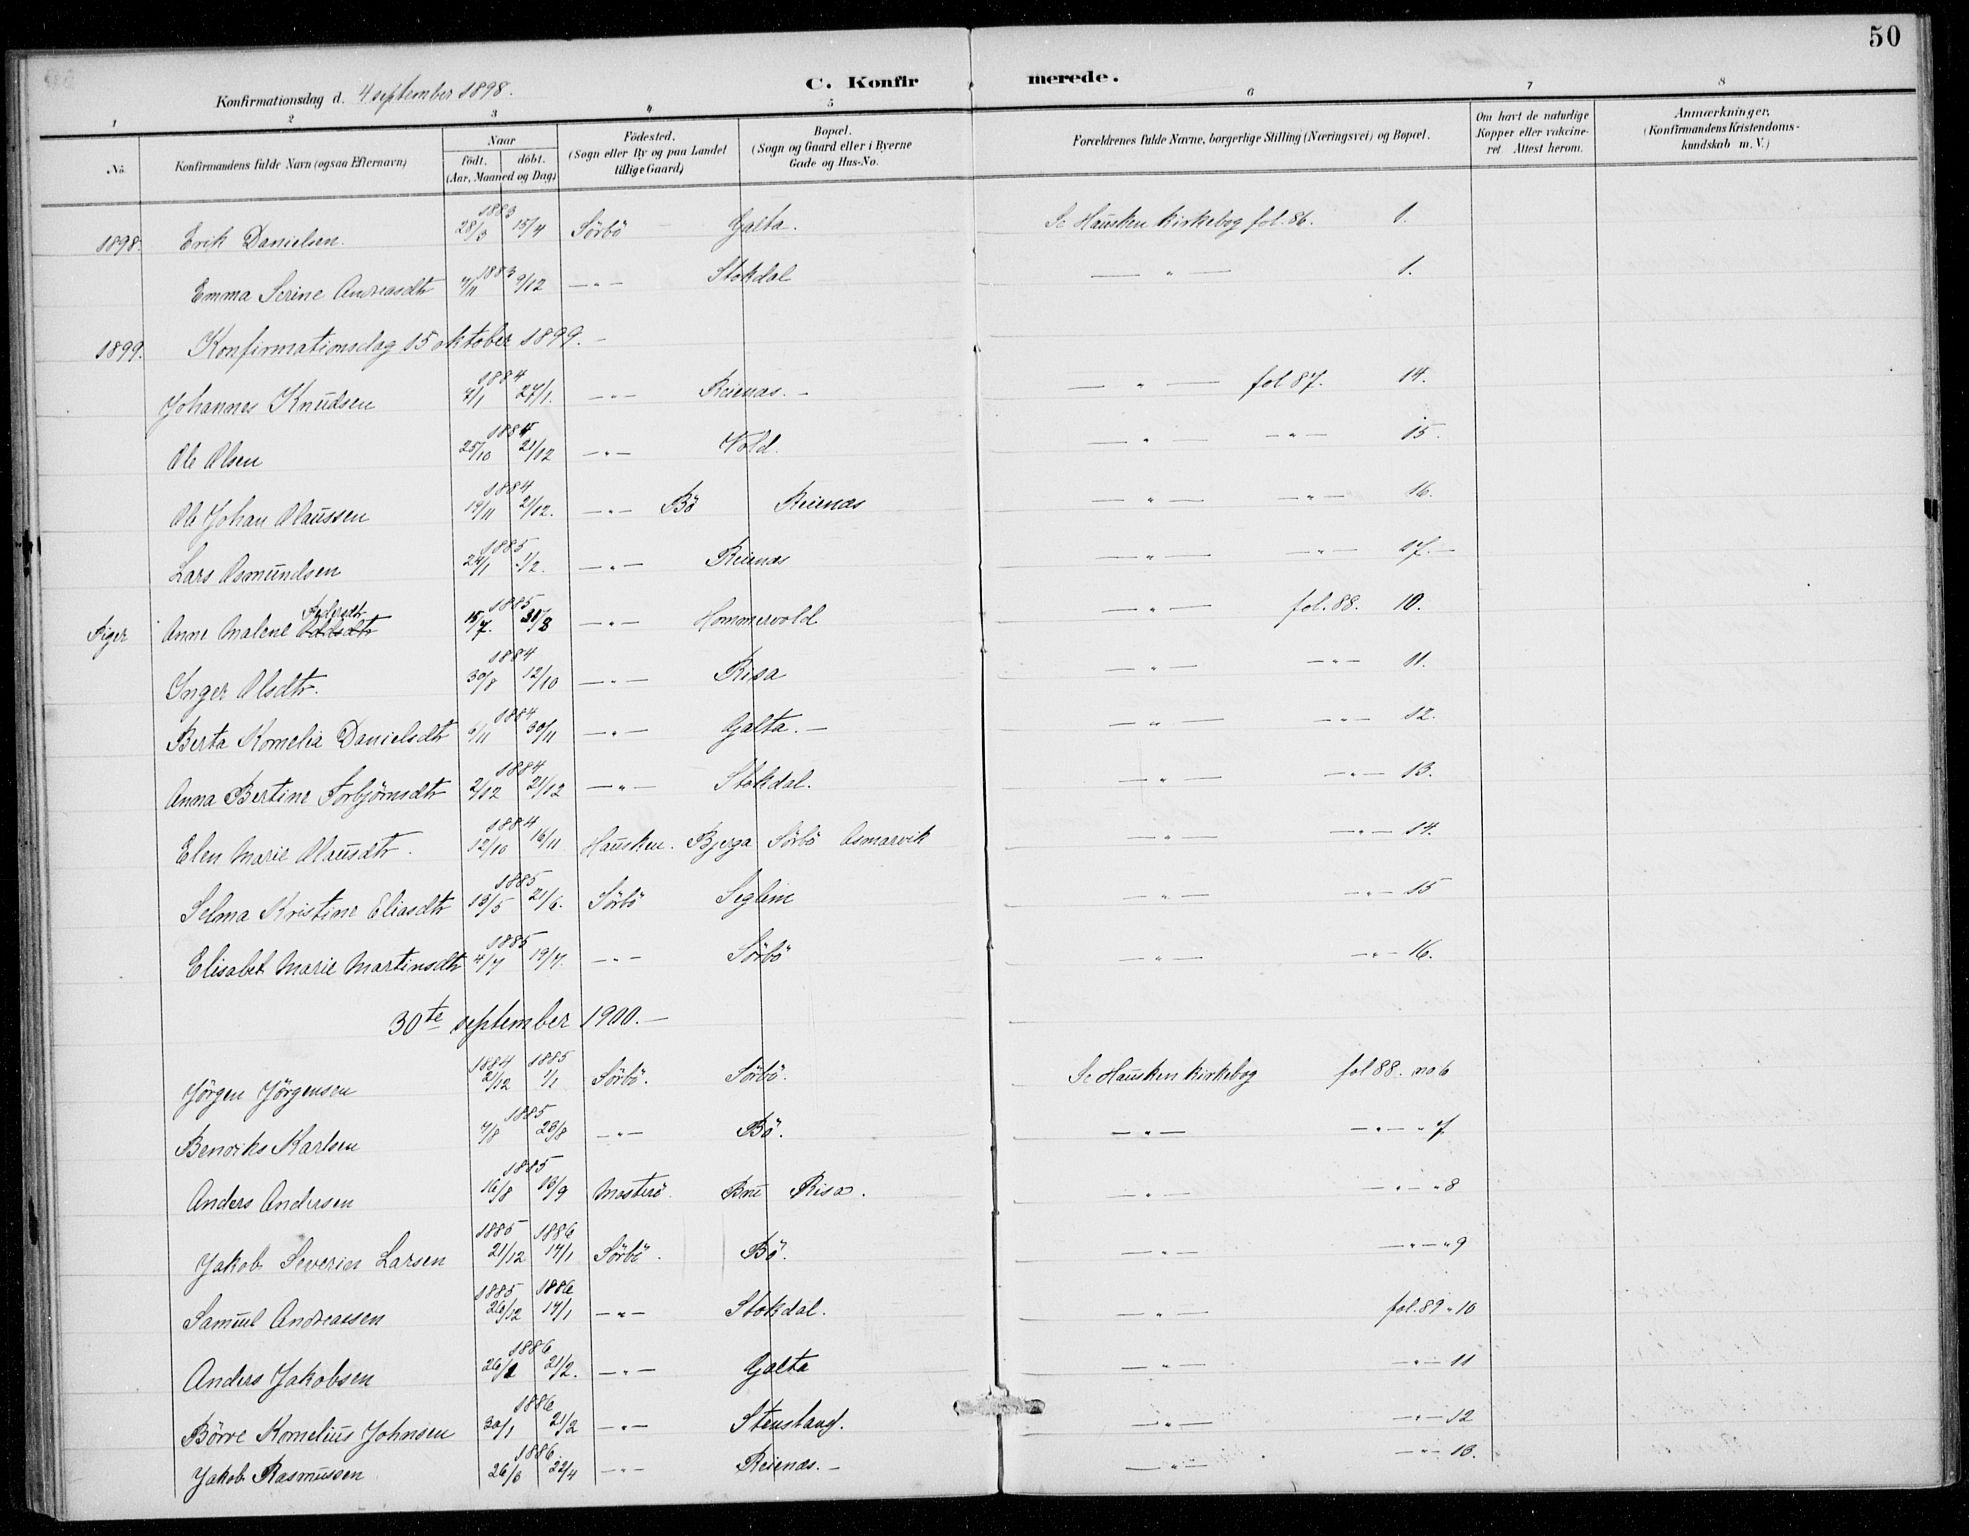 50
C. Konfirmerede.
Konfirmationsdag d. 4 september 1898.
1 2 3 4 5 6 7 8
No.
Konfirmandens fulde Navn (ogsaa Efternavn)
Naar
födt. döbt.
(Aar, Maaned og Dag)
Födested.
(Sogn eller By og paa Landet
tillige Gaard)
Bopæl.
(Sogn og Gaard eller i Byerne
Gade og Hus-No.
Forældrenes fulde Navne, borgerlige Stilling (Næringsvei) og Bopæl.
Om havt de naturlige
Kopper eller vakcine-
ret. Attest herom.
Anmærkninger,
(Konfirmandens Kristendoms-
kundskab m. V.)
1898. Erik Danielsen. 1883 28/3 15/4 Sörbö Galta. Se Hausken Kirkebog fol. 86. 1.
Emma Serine Andreasdtr 1883 7/11 9/12 — " — Stokdal — " — 1.
1899. Konfirmationsdag 15 oktober 1899. —
Johannes Knudsen 1884 7/1 27/1. — " — Reienæs. — — " — fol 87. 14.
Ole Olsen 1884 25/10 21/12 — " — Vold. — " — — " — 15.
Ole Johan Olaussen 1884 19/11 21/12. — " — Bö Reienæs — " — — " — 16.
Lars Asmundsen 1885 24/1 1/2. — " — Reienæs — " — — " — 17. —
Piger Anne Malene Pedersdtr 1885 15/7. 30/8 — " — Hommervold — " — fol. 88. 10.
Inger Olsdtr. 1884 30/8 12/10 — " — Risa — " — — " — 11.
Berta Kornelia Danielsdtr 1884 6/11 30/11 — " — Galta. — — " — — " — 12.
Anna Bertine Torbjörnsdtr 1884 2/12 21/12 — " — Stokdal. — " — — " — 13.
Elen Marie Olausdtr. 1884 12/10 16/11 Hausken. Bjerga Sörbö Asmarvik — " — — " — 14.
Selma Kristine Eliasdtr 1885 13/5 21/6. Sörbö Seglem — " — — " — 15
Elisabet Marie Martinsdtr 1885 4/7 19/7. — " — Sörbö — " — — " — 16.
30te september 1900. —
Jörgen Jörgensen 1884 2/12 1885 1/1 Sörbö. Sörbö. Se Hausken Kirkebog fol 88. no 6
Bendiks Karlsen 1885 7/8 23/8 — " — Bö. — " — — " — " 7.
Anders Andersen 1885 16/8 13/9 Mosterö. Bru Risa. — " — — " — " 8
Jakob Severin Larsen 1885 21/12 1886 17/1 Sörbö. Bö. — " — — " — " 9
Samuel Andreassen 1885 26/12 1886 17/1 — " — Stokdal. — " — fol. 89 " 10
Anders Jakobsen 1886 26/1 21/2. — " — Galta — " — — " — 11
Börre Kornelius Johnsen 1886 30/1 21/2 — " — Stenshaug. — " — — " — 12
Jakob Rasmussen 1886 26/3 22/4 — " — Reienæs. — — " — — " — 13.